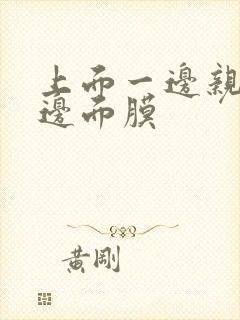 上而一邊親
邊而膜
黃剛